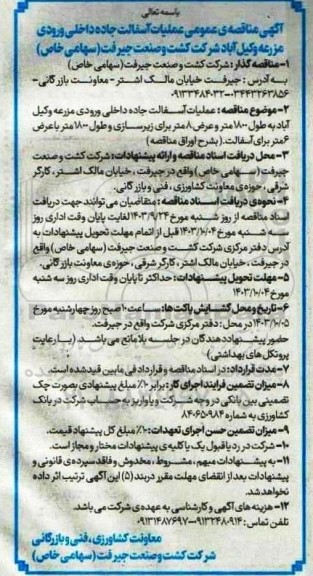 باسمه تعالی
آگهی مناقصه ی عمومی عملیات آسفالت جاده داخلی ورودی
مزرعه وکیل آباد شرکت کشت و صنعت جیرفت (سهامی خاص)
۱- مناقصه گذار : شرکت کشت و صنعت جیرفت (سهامی خاص)
به آدرس : جیرفت خیابان مالک اشتر - معاونت بازرگانی-
۰۳۴۴۳۲۶۳۸۵۶-۰۹۱۳۳۴۸۴۰۳۲
۲- موضوع مناقصه : عملیات آسفالت جاده داخلی ورودی مزرعه وکیل
آباد به طول ۱۸۰۰ متر و عرض ۸ متر برای زیرسازی و طول ۱۸۰۰ متر با عرض
۶ متر برای آسفالت. (بشرح اوراق مناقصه)
۳- محل دریافت اسناد مناقصه و ارائه پیشنهادات : شرکت کشت و صنعت
جیرفت (سهامی خاص) واقع در جیرفت ، خیابان مالک اشتر ، کارگر
شرقی ، حوزه ی معاونت کشاورزی ، فنی و بازرگانی.
۴- نحوه ی دریافت اسناد مناقصه : متقاضیان می توانند جهت دریافت
اسناد مناقصه از روز شنبه مورخ ۱۴۰۳/۹/۲۴ لغایت پایان وقت اداری روز
سه شنبه مورخ ۱۴۰۳/۱۰/۰۴ قبل از اتمام مهلت تحویل پیشنهادات به
آدرس دفتر مرکزی شرکت کشت و صنعت جیرفت (سهامی خاص) واقع
در جیرفت ، خیابان مالک اشتر ، کارگر شرقی ، حوزه ی معاونت بازرگانی.
۵- مهلت تحویل پیشنهادات : حداکثر تا پایان وقت اداری روز سه شنبه
مورخ ۱۴۰۳/۱۰/۰۴
۶- تاریخ و محل گشایش پاکت ها : ساعت ۱۰ صبح روز چهارشنبه مورخ
۱۴۰۳/۱۰/۰۵ در محل : دفتر مرکزی شرکت واقع در جیرفت.
حضور پیشنهاد دهندگان در جلسه بلامانع می باشد. (با رعایت
پروتکل های بهداشتی)
۷- مدت قرارداد : در اسناد مناقصه و قرارداد فی مابین قید شده است.
۸- میزان تضمین فرایند اجرای کار : برابر ۱۰٪ مبلغ پیشنهادی بصورت چک
تضمینی بین بانکی در وجه شرکت و یا واریز به حساب شرکت در بانک
کشاورزی به شماره ۸۴۰۶۵۰۹۸۴
۹- میزان تضمین حسن اجرای تعهدات : ۱۰٪ مبلغ کل پیشنهاد قیمت.
۱۰- شرکت در رد یا قبول یک یا کلیه ی پیشنهادات مختار و مجاز است.
۱۱- به پیشنهادات مبهم ، مشروط ، مخدوش و فاقد سپرده ی قانونی و
پیشنهادات بعد از انقضای مهلت مقرر در بند (۵) این آگهی ترتیب اثر داده
نخواهد شد.
۱۲- هزینه های آگهی و کارشناسی به عهده ی شرکت می باشد.
تلفن تماس : ۰۹۱۳۲۴۸۰۹۱۴-۰۹۱۳۱۴۸۷۶۹۷
معاونت کشاورزی ، فنی و بازرگانی
شرکت کشت و صنعت جیرفت (سهامی خاص)